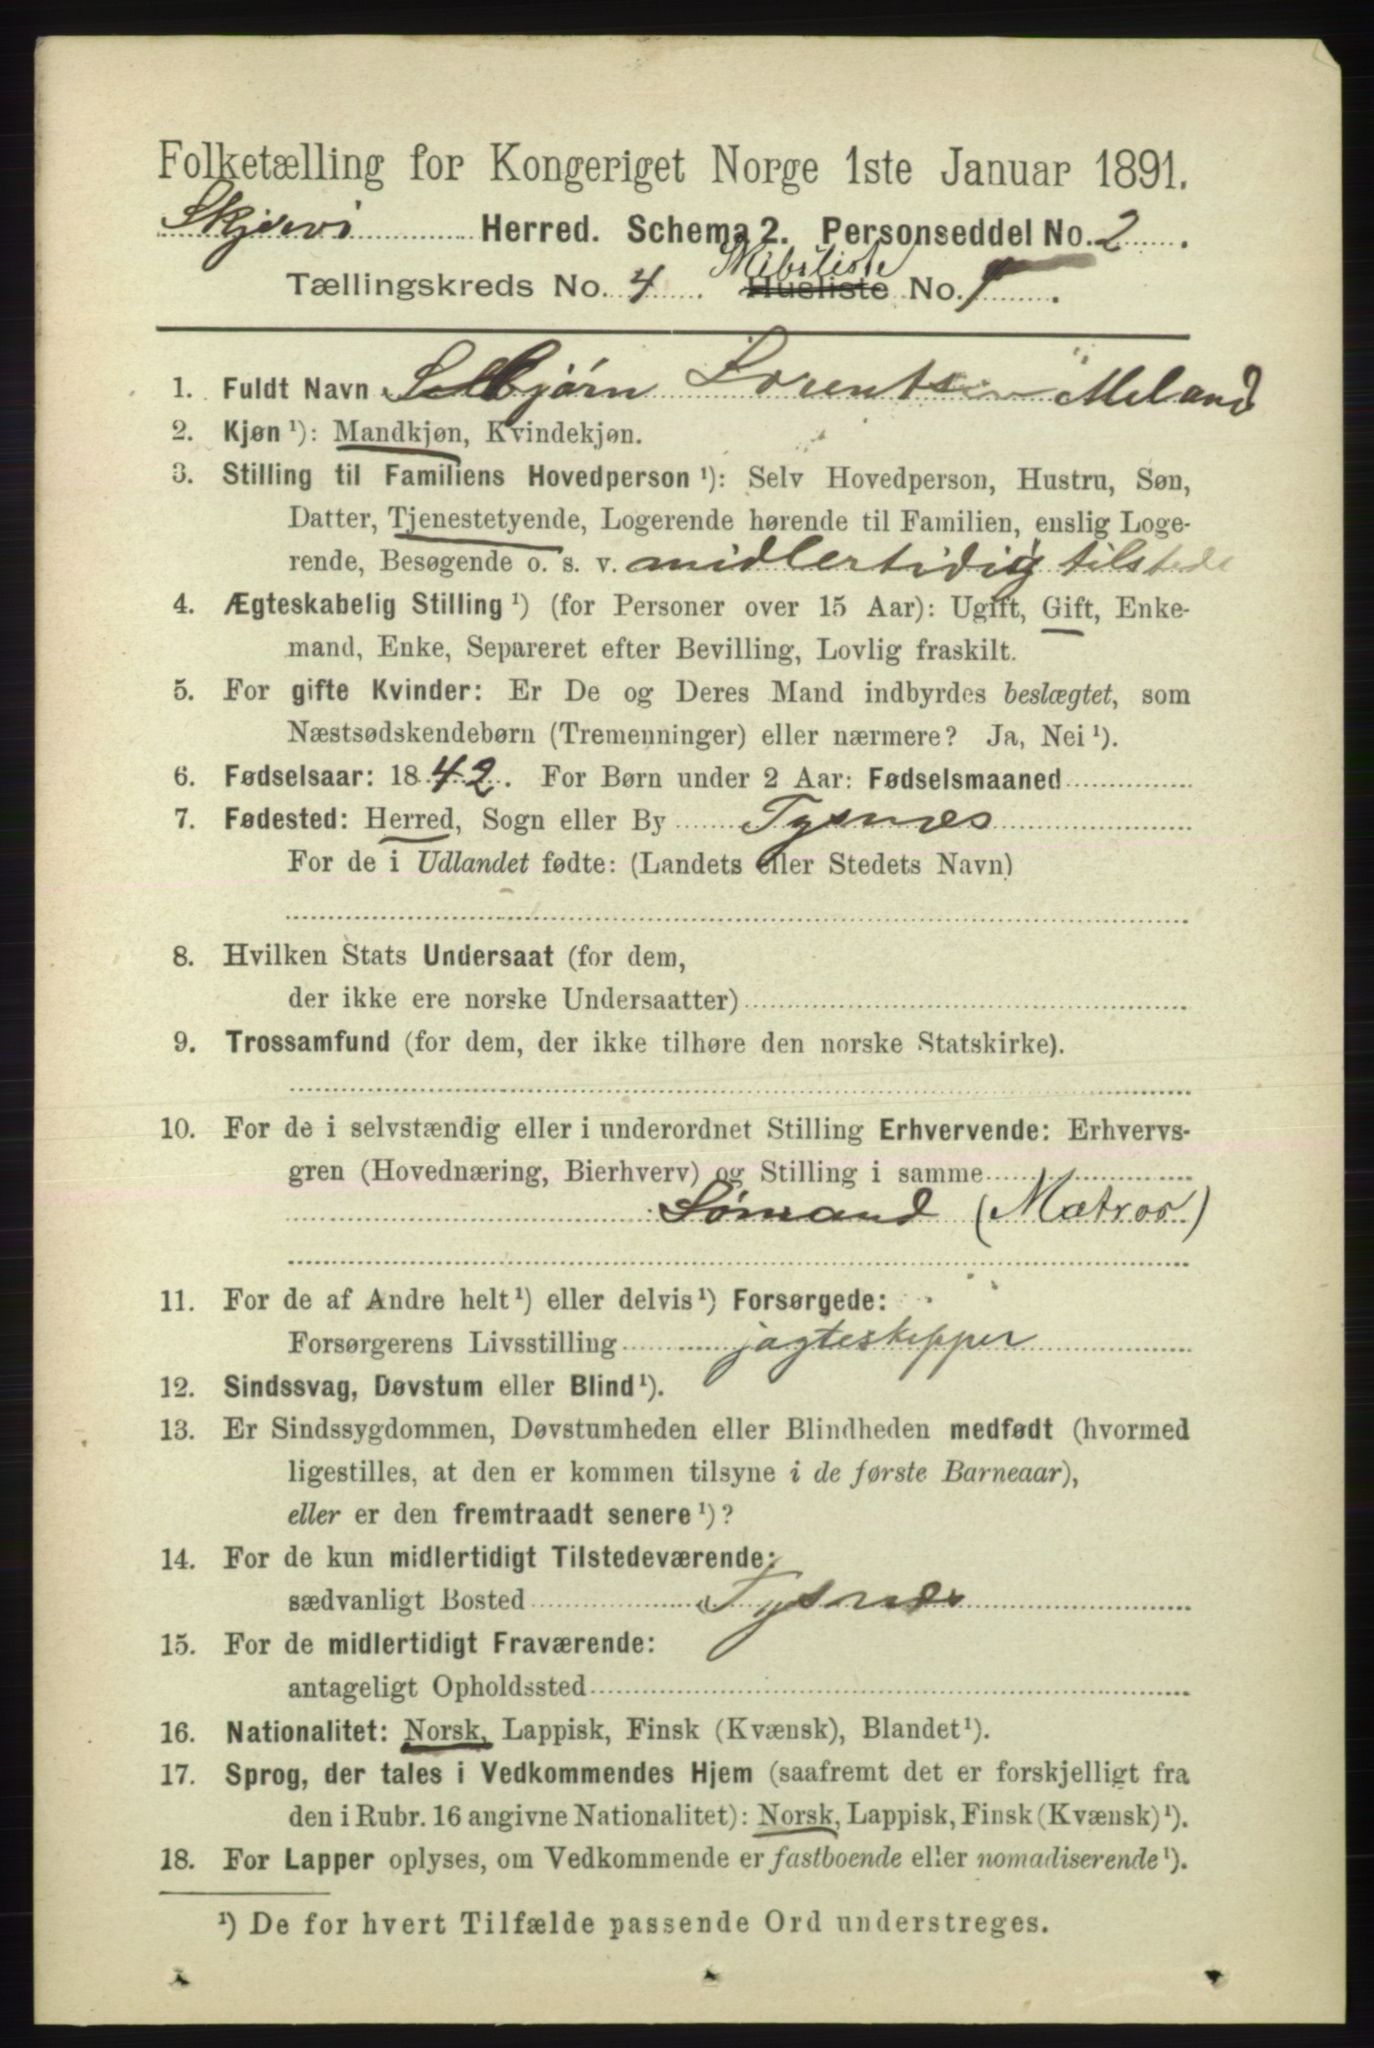 Folketælling for Kongeriget Norge 1ste Januar 1891.
Skjervø Herred. Schema 2. Personseddel No. 2.
Skibsliste
Tællingskreds No. 4 Husliste No. 1.
1. Fuldt Navn Selbjørn Lorentsen Meland
2. Kjøn ¹): Mandkjøn, Kvindekjøn.
3. Stilling til Familiens Hovedperson ¹): Selv Hovedperson, Hustru, Søn,
Datter, Tjenestetyende, Logerende hørende til Familien, enslig Loge-
rende, Besøgende o. s. v. midlertidig tilstede
4. Ægteskabelig Stilling ¹) (for Personer over 15 Aar): Ugift, Gift, Enke-
mand, Enke, Separeret efter Bevilling, Lovlig fraskilt.
5. For gifte Kvinder: Er De og Deres Mand indbyrdes beslægtet, som
Næstsødskendebørn (Tremenninger) eller nærmere? Ja, Nei ¹).
6. Fødselsaar: 1842. For Børn under 2 Aar: Fødselsmaaned
7. Fødested: Herred, Sogn eller By Tysnæs
For de i Udlandet fødte: (Landets eller Stedets Navn)
8. Hvilken Stats Undersaat (for dem,
der ikke ere norske Undersaatter)
9. Trossamfund (for dem, der ikke tilhøre den norske Statskirke).
10. For de i selvstændig eller i underordnet Stilling Erhvervende: Erhvervs-
gren (Hovednæring, Bierhverv) og Stilling i samme
Sømand (Matros)
11. For de af Andre helt ¹) eller delvis ¹) Forsørgede:
Forsørgerens Livsstilling jagteskipper
12. Sindssvag, Døvstum eller Blind ¹).
13. Er Sindssygdommen, Døvstumheden eller Blindheden medfødt (hvormed
ligestilles, at den er kommen tilsyne i de første Barneaar),
eller er den fremtraadt senere ¹)?
14. For de kun midlertidigt Tilstedeværende:
sædvanligt Bosted Tysnæs
15. For de midlertidigt Fraværende:
antageligt Opholdssted
16. Nationalitet: Norsk, Lappisk, Finsk (Kvænsk), Blandet ¹).
17. Sprog, der tales i Vedkommendes Hjem (saafremt det er forskjelligt fra
den i Rubr. 16 angivne Nationalitet): Norsk, Lappisk, Finsk (Kvænsk) ¹).
18. For Lapper oplyses, om Vedkommende er fastboende eller nomadiserende ¹).
¹) De for hvert Tilfælde passende Ord understreges.